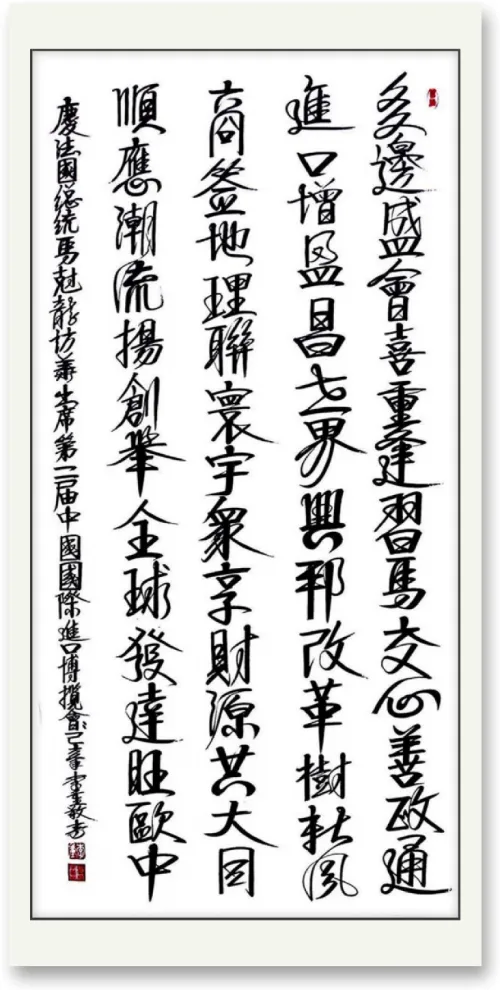 多邊盛會喜重逢習馬交心善政通
進口增盈昌世界興邦改革樹風
商簽地理聯寰宇眾享財源共大同
順應潮流揚創舉全球發達旺歐中
慶法國總統馬尅龍訪華出席第二届中國國際進口博攬會己亥書